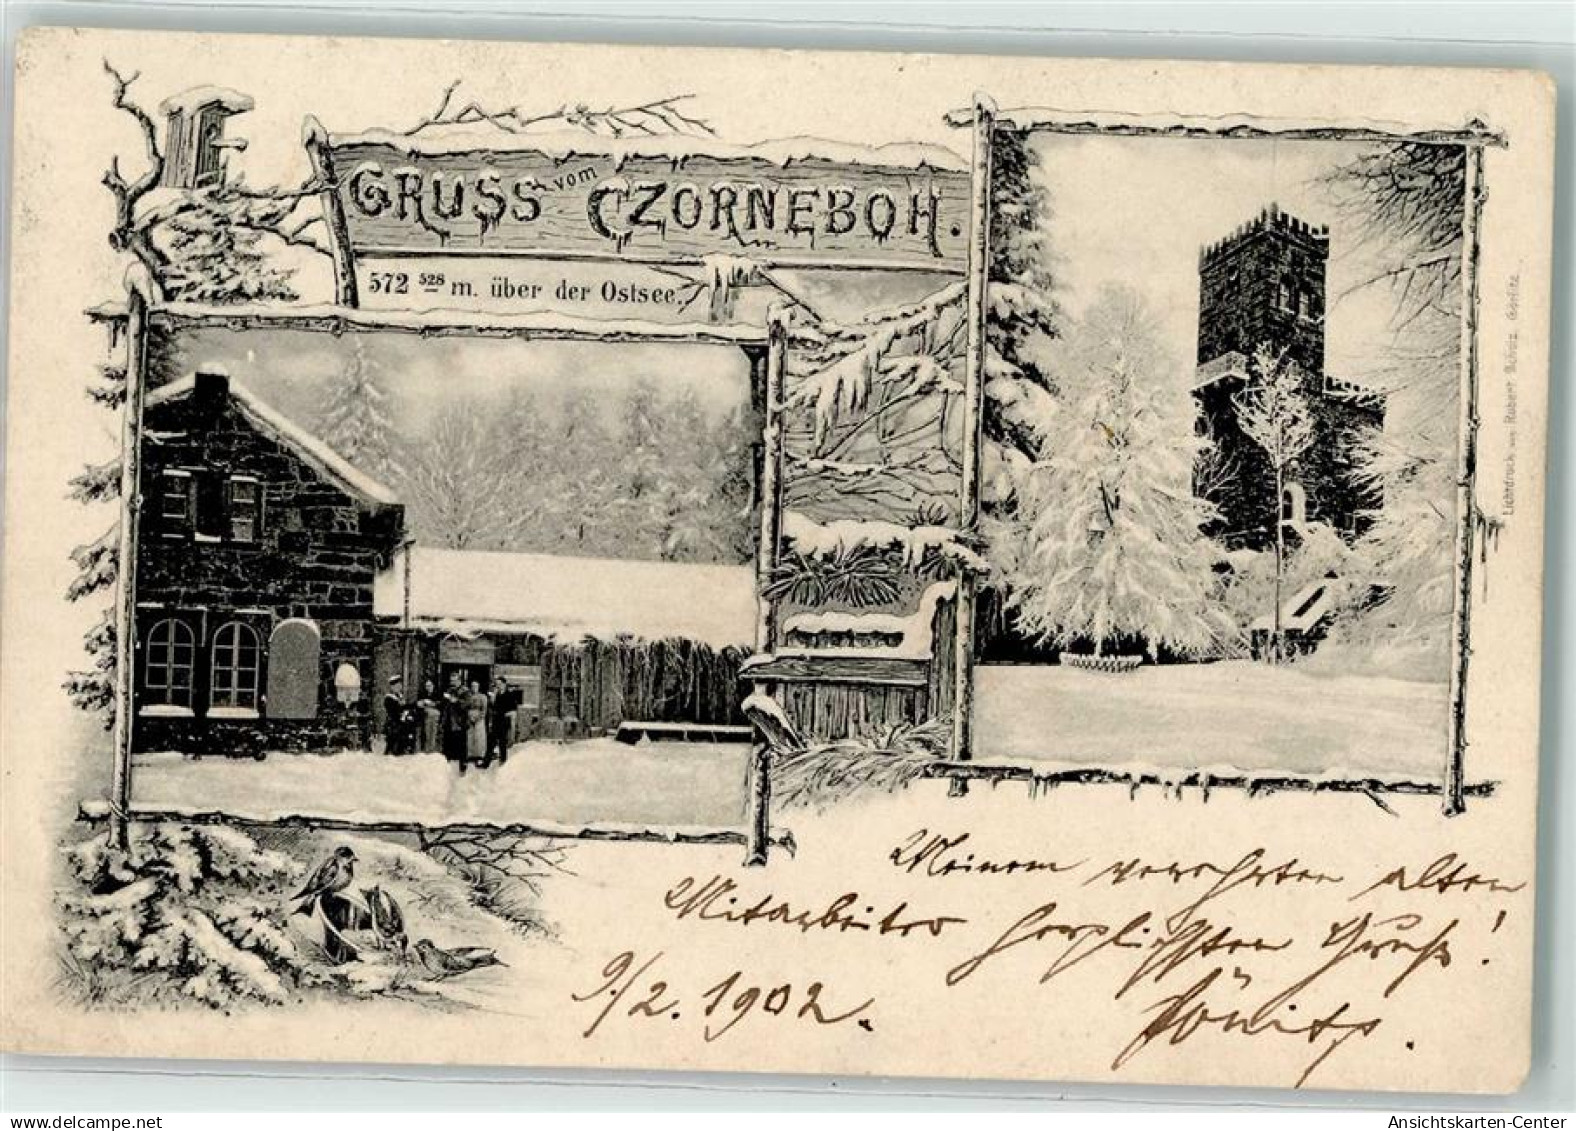 GRUSS vom CZORNEBOH.
572 528 m. über der Ostsee.
Lichtdruck von Robert Scholz, Görlitz.
Meinem verehrten alten
Mitarbeiter herzlichsten Gruß!
9./2. 1902.
Ansichtskarten-Center